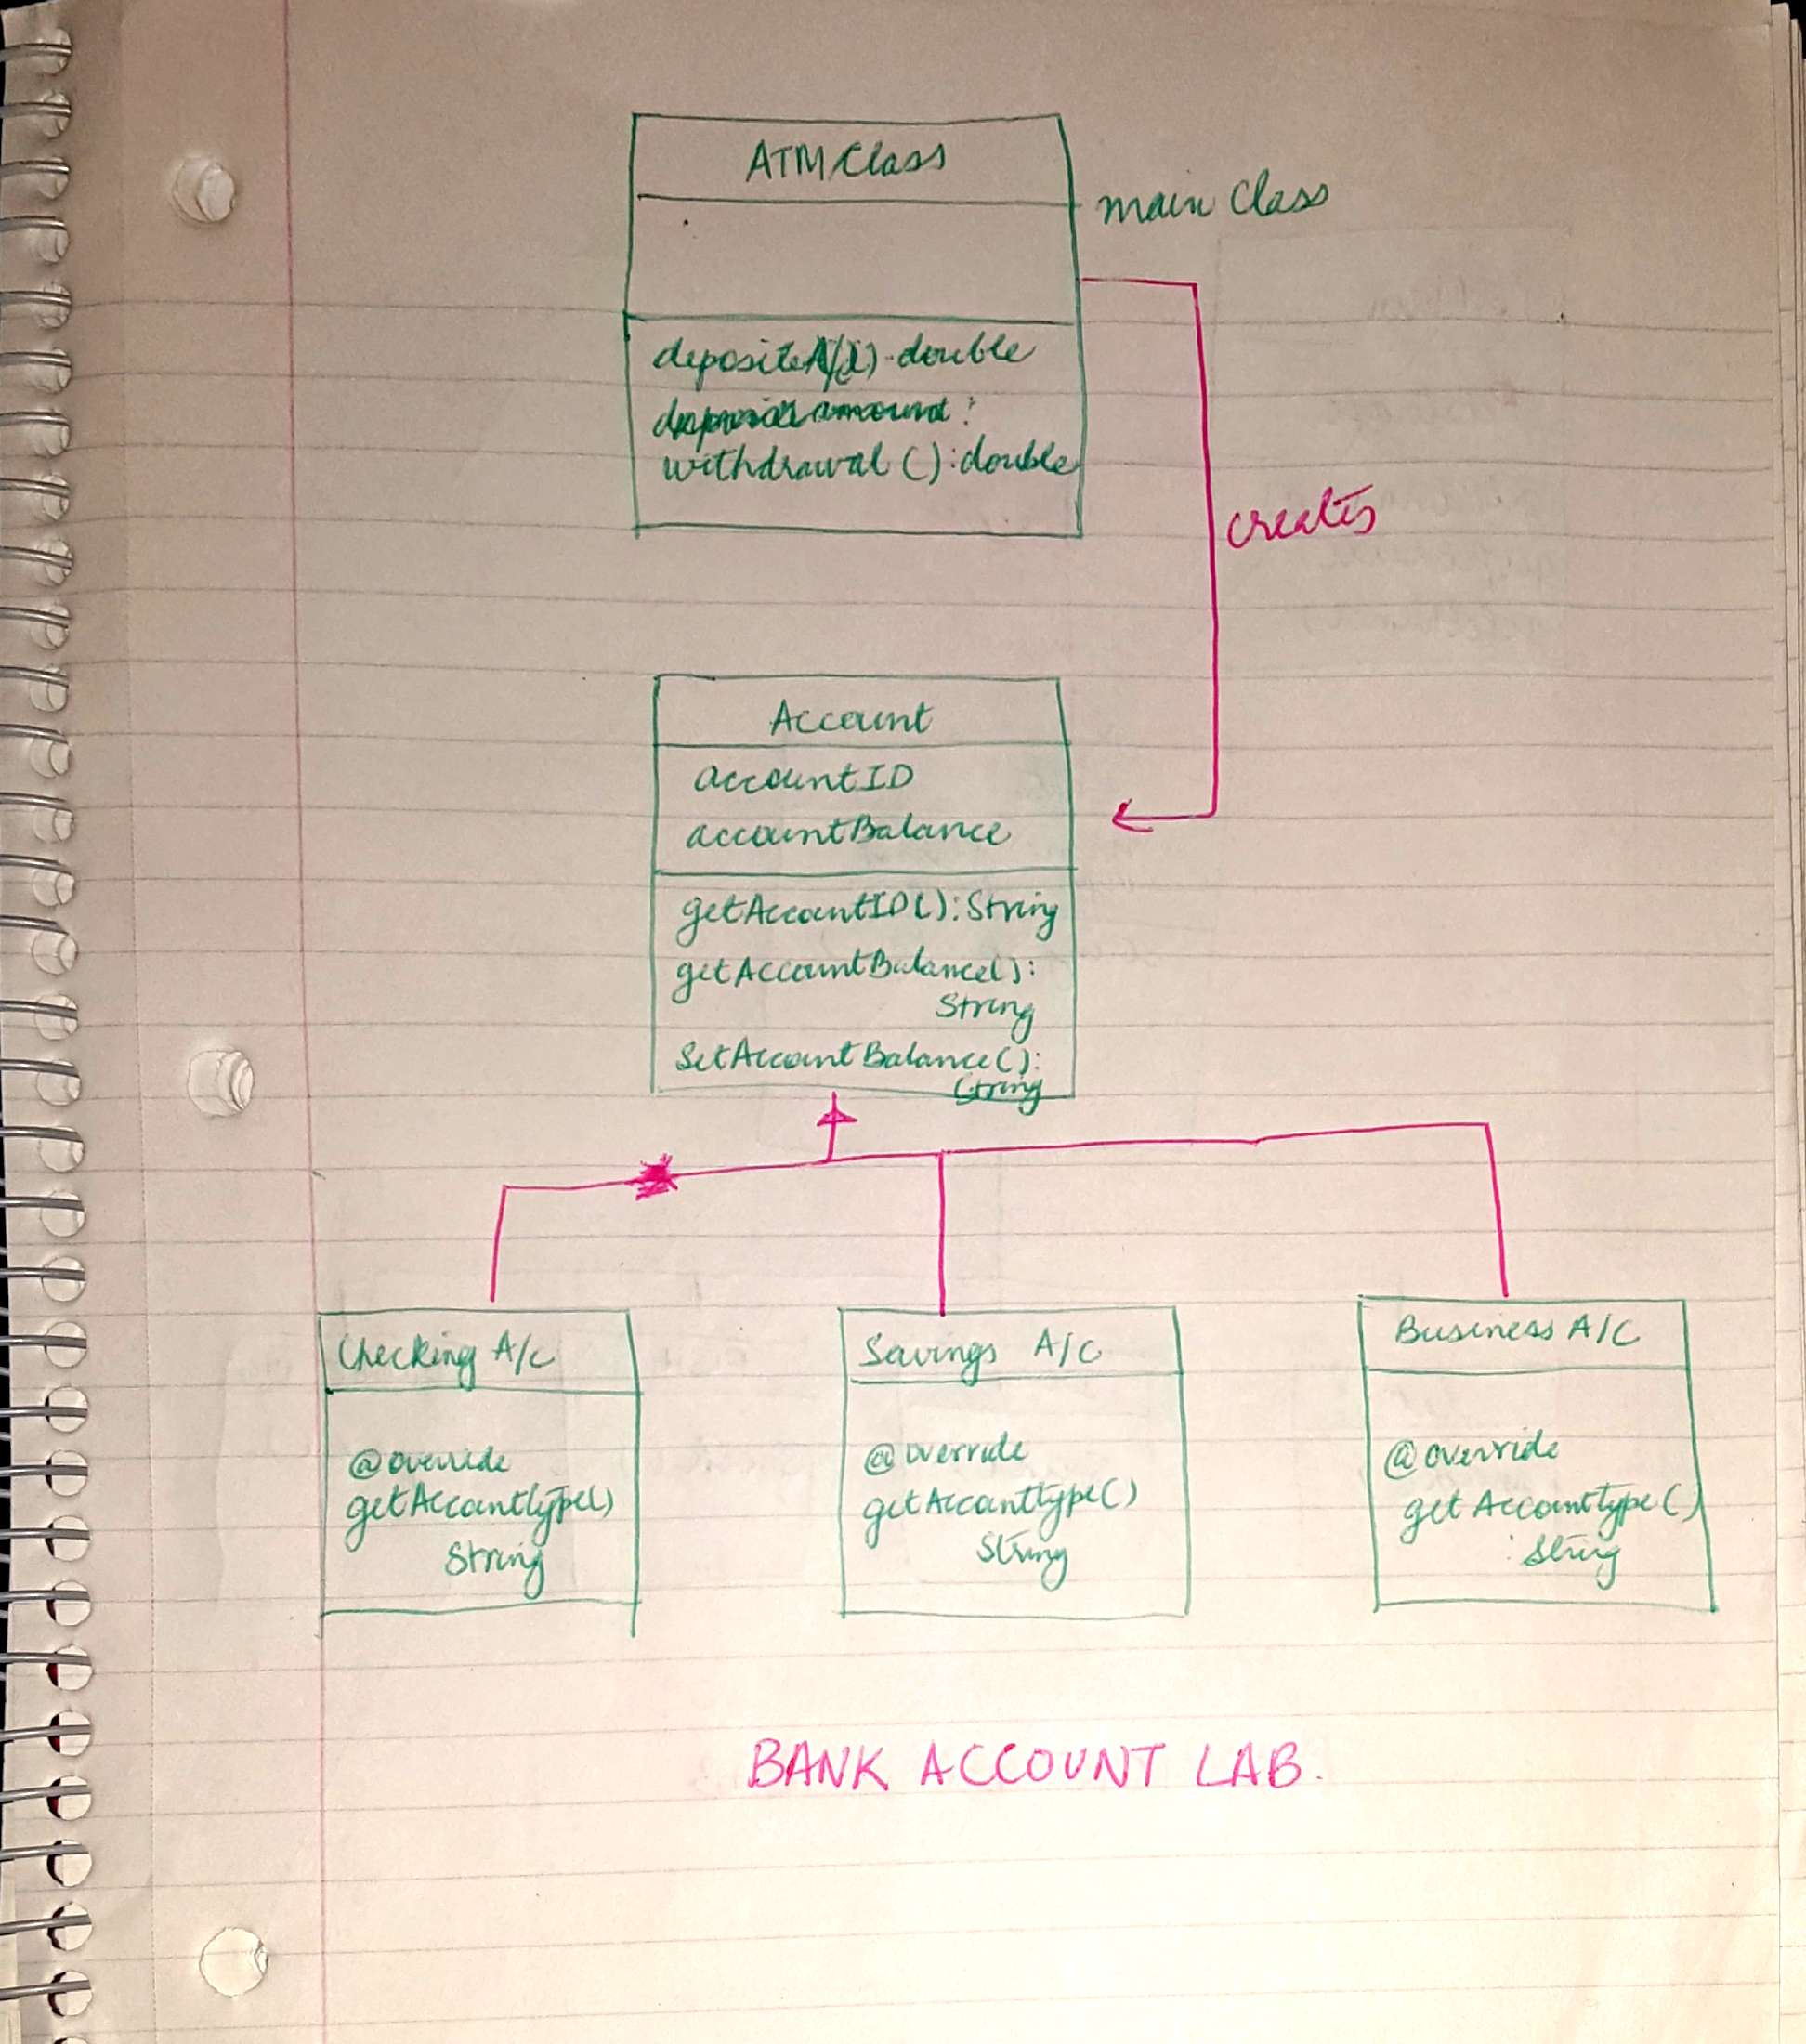 ATM Class
main Class
deposite
double
withdrawal ( ) : double
creates
Account
accountID
accountBalance
getAccountID( ) : String
getAccountBalance( ) :
String
SetAccountBalance( ) :
String
Checking A/C
@override
getAccounttype( )
String
Savings A/C
@override
getAccounttype( )
String
Business A/C
@override
getAccounttype( )
: String
BANK ACCOUNT LAB.